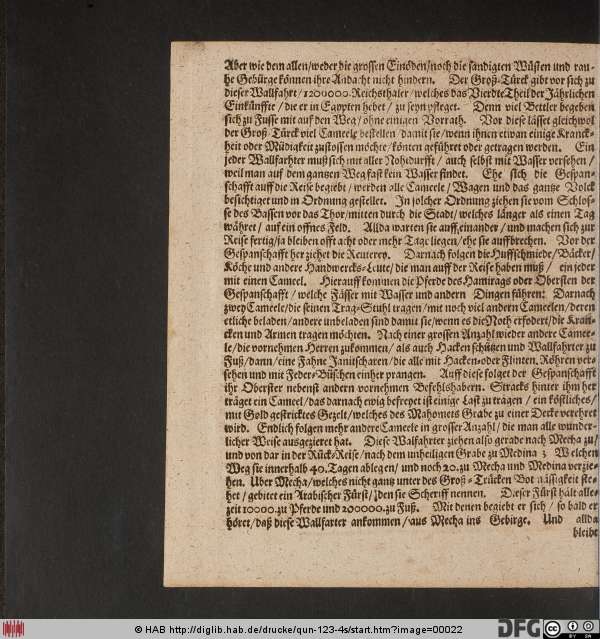 Aber wie dem allen/weder die grossen Einöden/noch die sandigten Wüsten und rau-
he Gebürge können ihre Andacht nicht hindern. Der Groß-Türck gibt vor sich zu
dieser Wallfahrt/1200000.Reichsthaler/welches das Vierdte Theil der Jährlichen
Einkünffte/die er in Egypten hebet/zu seyn pfleget. Denn viel Bettler begeben
sich zu Fusse mit auf den Weg/ohne einigen Vorrath. Vor diese lässet gleichwol
der Groß-Türck viel Cameele bestellen/damit sie/wenn ihnen etwan einige Kranck-
heit oder Müdigkeit zustossen möchte/könten geführet oder getragen werden. Ein
jeder Wallfarhter muß sich mit aller Nohtdurfft/auch selbst mit Wasser versehen/
weil man auf dem gantzen Weg fast kein Wasser findet. Ehe sich die Gespan-
schafft auff die Reise begiebt/werden alle Cameele/Wagen und das gantze Volck
besichtiget und in Ordnung gestellet. In solcher Ordnung ziehen sie vom Schlos-
se des Bassen vor das Thor/mitten durch die Stadt/welches länger als einen Tag
währet/auf ein offnes Feld. Allda warten sie auff einander/und machen sich zur
Reise fertig/ja bleiben offt acht oder mehr Tage liegen/ehe sie auffbrechen. Vor der
Gespanschafft her ziehet die Reuterey. Darnach folgen die Huffschmiede/Bäcker/
Köche und andere Handwercks-Leute/die man auff der Reise haben muß/ein jeder
mit einen Cameel. Hierauff kommen die Pferde des Hamirags oder Obersten der
Gespanschafft/welche Fässer mit Wasser und andern Dingen führen: Darnach
zwey Cameele/die seinen Trag-Stuhl tragen/mit noch viel andern Cameelen/deren
etliche beladen/andere unbeladen sind damit sie/wenn es die Noth erfodert/die Kran-
cken und Armen tragen möchten. Nach einer grossen Anzahl wieder andere Camee-
le/die vornehmen Herren zukommen/als auch Hacken-schützen und Wallfahrter zu
Fuß/dann/eine Fahne Janitscharen/die alle mit Hacken-oder Flinten, Röhren ver-
sehen und mit Feder-Büschen einher prangen. Auff diese folget der Gespanschafft
ihr Oberster nebenst andern vornehmen Befehlshabern. Stracks hinter ihm her
träget ein Cameel/das darnach ewig befreyet ist einige Last zu tragen/ein köstliches/
mit Gold gestricktes Gezelt/welches des Mahomets Grabe zu einer Decke verehret
wird. Endlich folgen mehr andere Cameele in grosser Anzahl/die man alle wunder-
licher Weise ausgezieret hat. Diese Walfahrter ziehen also gerade nach Mecha zu/
und von dar in der Rück-Reise/nach dem unheiligen Grabe zu Medina; Welchen
Weg sie innerhalb 40.Tagen ablegen/und noch 20.zu Mecha und Medina verzie-
hen. Uber Mecha/welches nicht gantz unter des Groß-Trücken Botmässigkeit ste-
het/gebitet ein Arabischer Fürst/den sie Scheriff nennen. Dieser Fürst hält alle-
zeit 10000.zu Pferde und 200000.zu Fuß. Mit denen begiebt er sich/so bald er
höret/daß diese Wallfarter ankommen/aus Mecha ins Gebirge. Und allda
bleibt
© HAB http://diglib.hab.de/drucke/qun-123-4s/start.htm?image=00022
DFG
CC BY SA